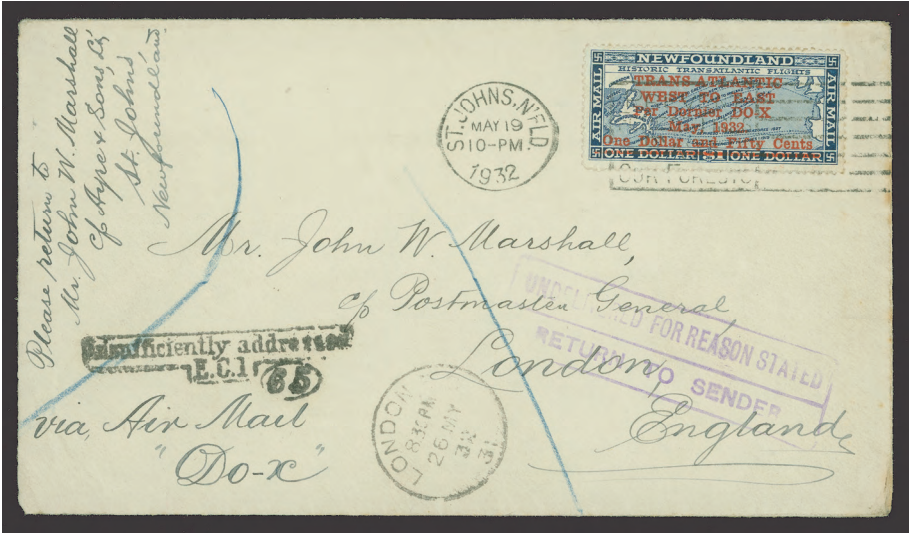 Please return to
Mr. John W. Marshall
c/o Ayre & Sons Ld
St. Johns
Newfoundland
ST. JOHNS, N'FLD.
MAY 19
10-PM.
1932
NEWFOUNDLAND
HISTORIC TRANSATLANTIC FLIGHTS
AIR MAIL
AIR MAIL
TRANS-ATLANTIC
WEST TO EAST
Per Dornier DO-X
May, 1932.
One Dollar and Fifty Cents
ONE DOLLAR $1 ONE DOLLAR
OUR FORESTS
Mr. John W. Marshall,
c/o Postmaster General,
London,
England
UNDELIVERED FOR REASON STATED
RETURN TO SENDER
Insufficiently addressed
E.C.1 65
LONDON
8.30 PM
26 MY
32
31
via Air Mail
"Do-x"